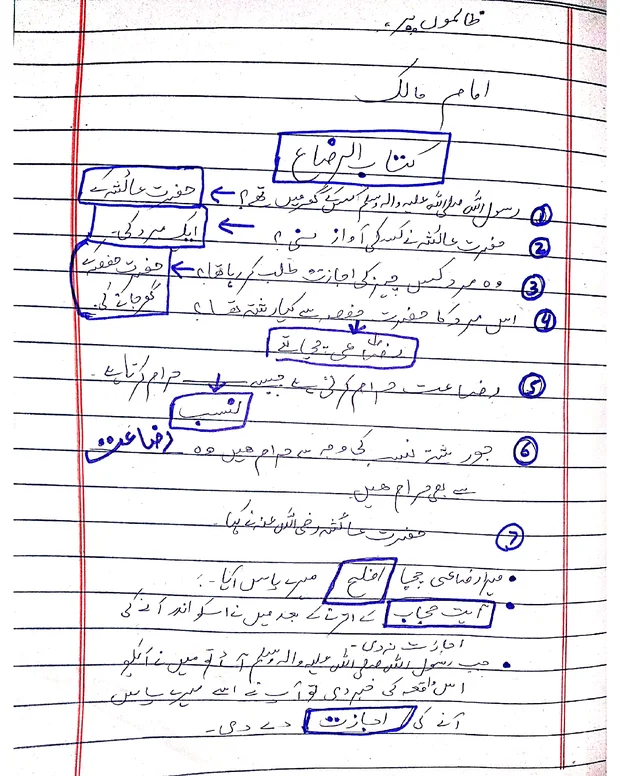 ظالموں پر۔
امام مالک
کتاب الرضاع
① رسول اللہ صلی اللہ علیہ والہ وسلم کس کے گھر میں تھے؟ ← حضرت عائشہ کے
② حضرت عائشہ نے کس کی آواز سنی؟ ← ایک مرد کی۔
③ وہ مرد کس چیز کی اجازت طلب کر رہا تھا؟ ← حضرت حفصہ کے گھر جانے کی۔
④ اس مرد کا حضرت حفصہ سے کیا رشتہ تھا؟
رضاعی چچا تھے
⑤ رضاعت حرام کرتی ہے جیسے ــــ حرام کرتا ہے۔
نسب
⑥ جو رشتہ نسب کی وجہ سے حرام ھیں وہ رضاعت
سے بھی حرام ھیں۔
⑦ حضرت عائشہ رضی اللہ عنہ نے کہا۔
• میرا رضاعی چچا افلح میرے پاس آیا۔
• آیت حجاب کے اترنے کے بعد میں نے اسکو اندر آنے کی
اجازت نہ دی۔
• جب رسول اللہ صلی اللہ علیہ والہ وسلم آئے تو میں نے آپکو
اس واقعہ کی خبر دی تو آپ نے اسے میرے پاس
آنے کی اجازت دے دی۔